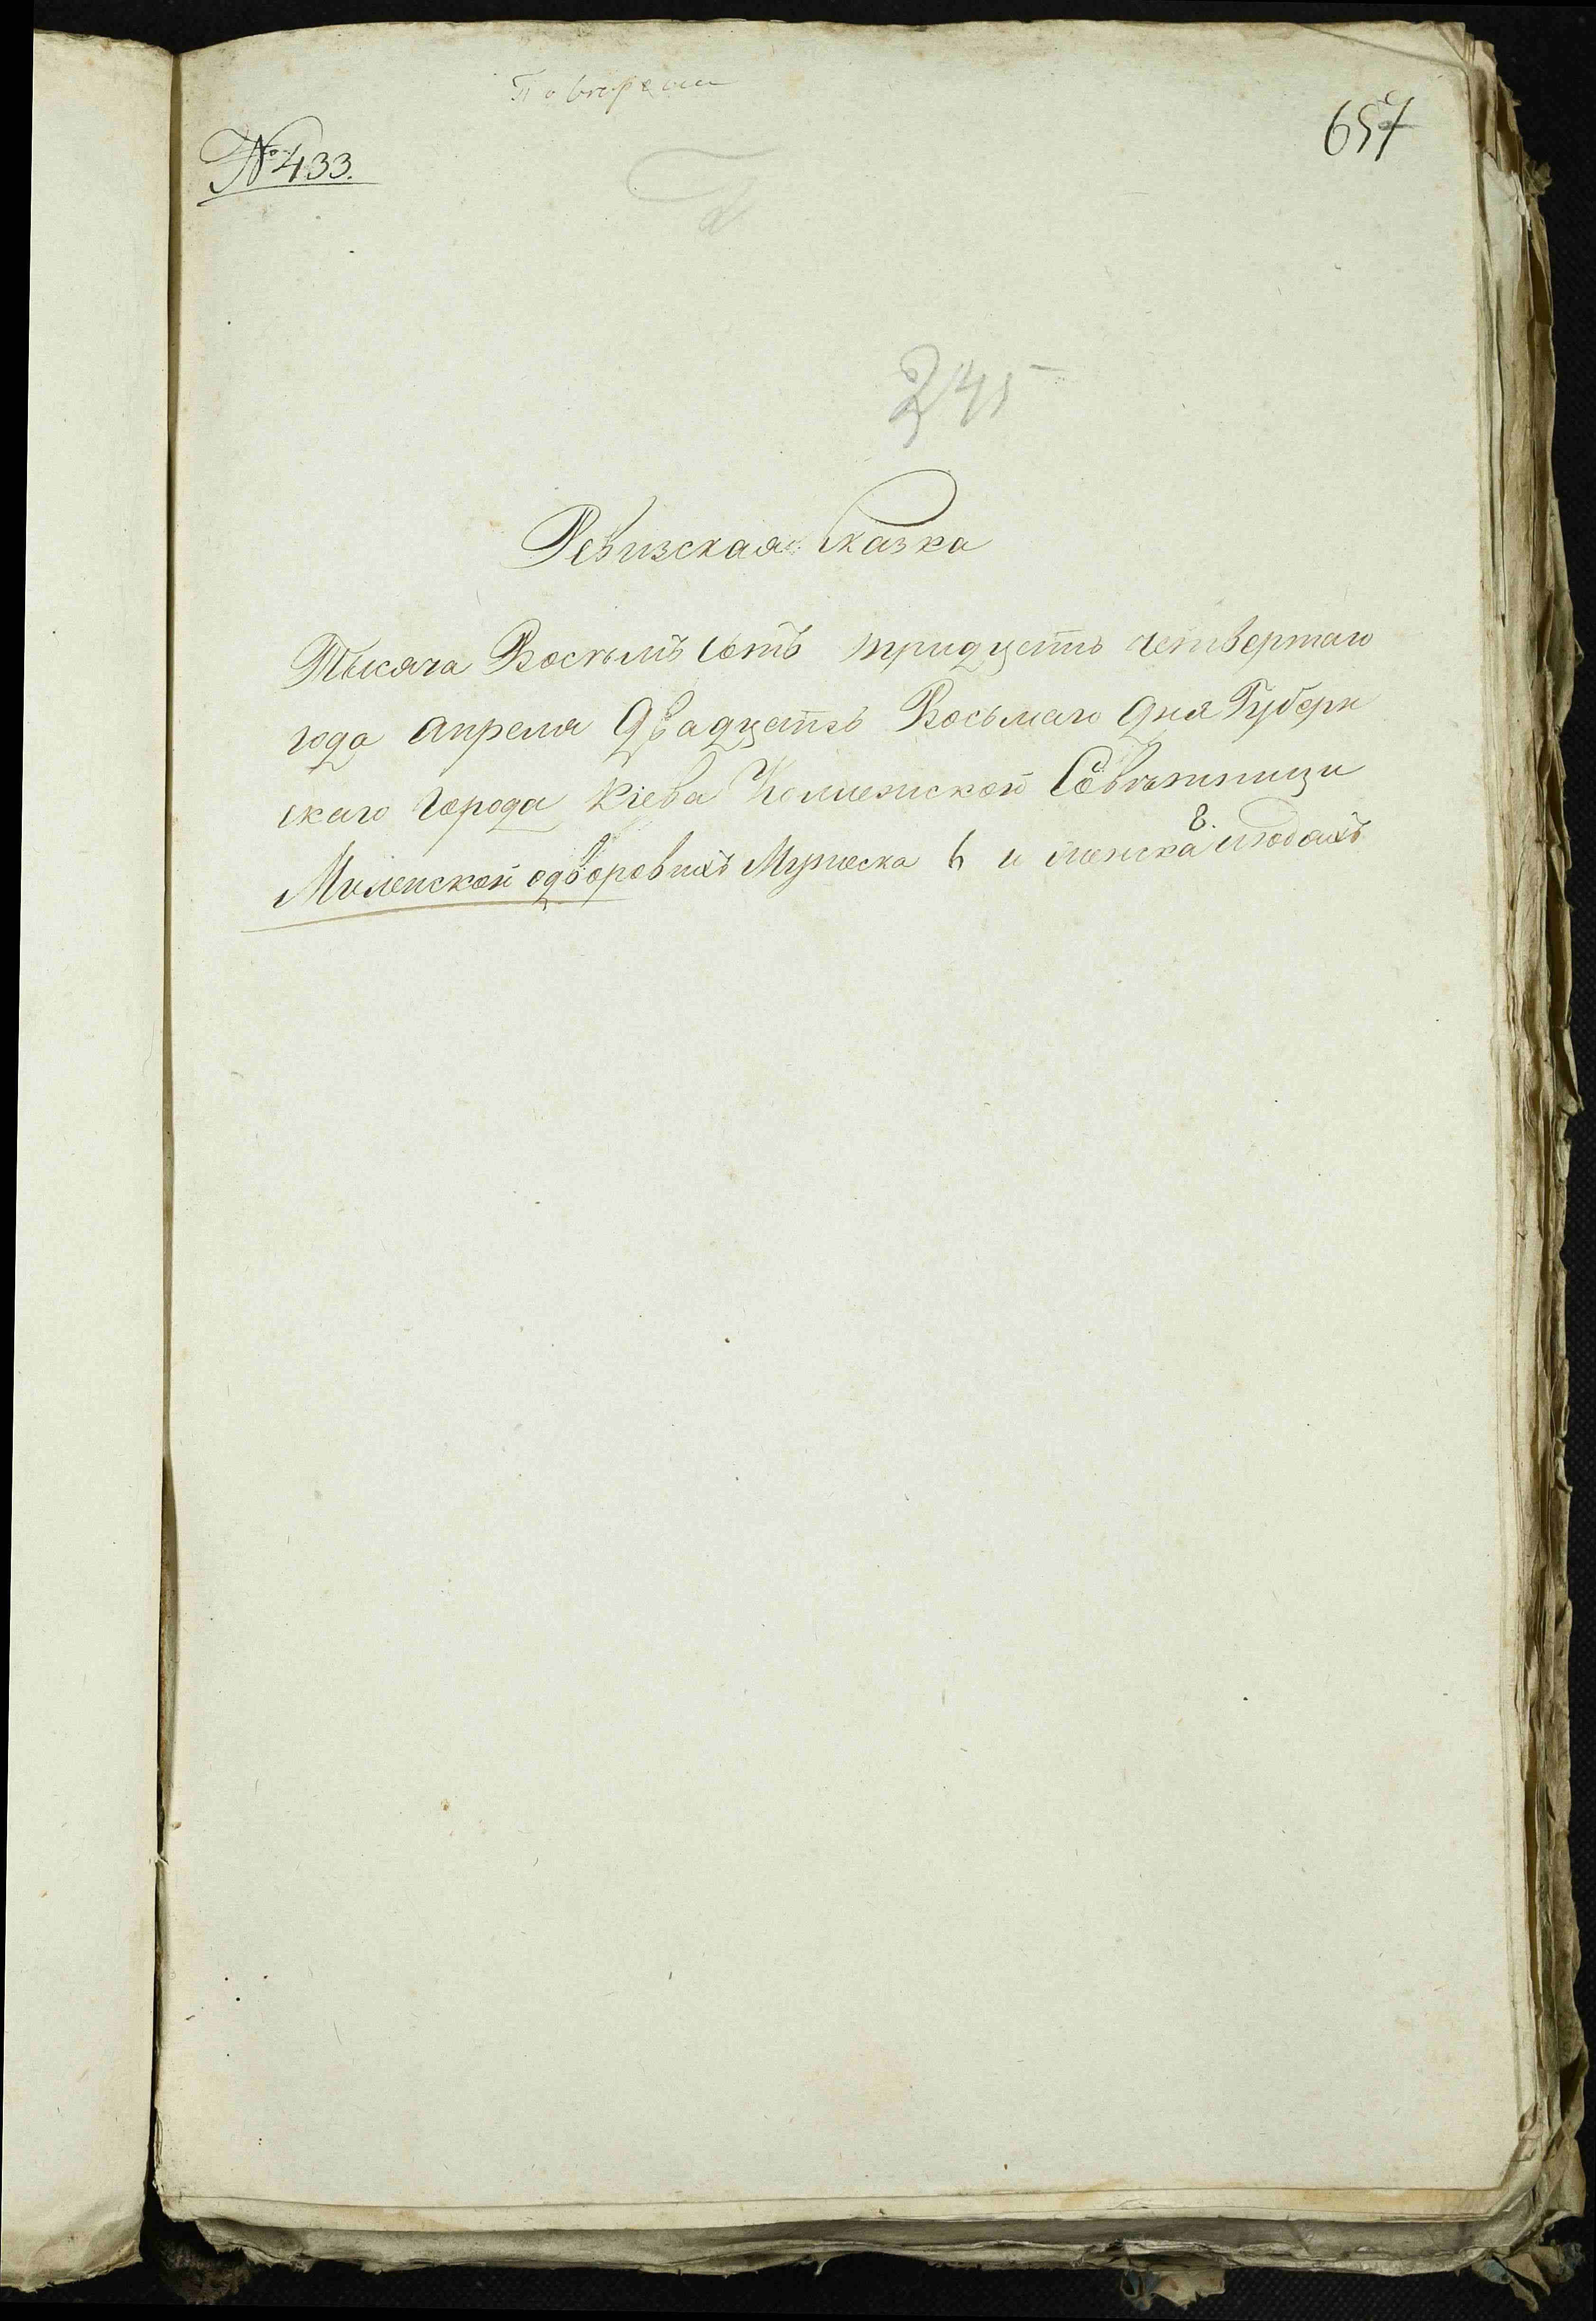 № 433.
657
245
Ревизская Сказка
Тысяча Восьмъ сотъ тридцеть четвертаго
года апреля Двадцеть Восьмаго Дня Губерн
скаго Города Кіева Колежской Совѣтници
Миленской одворовыхъ Мужеска 6 и женска 8. людяхъ